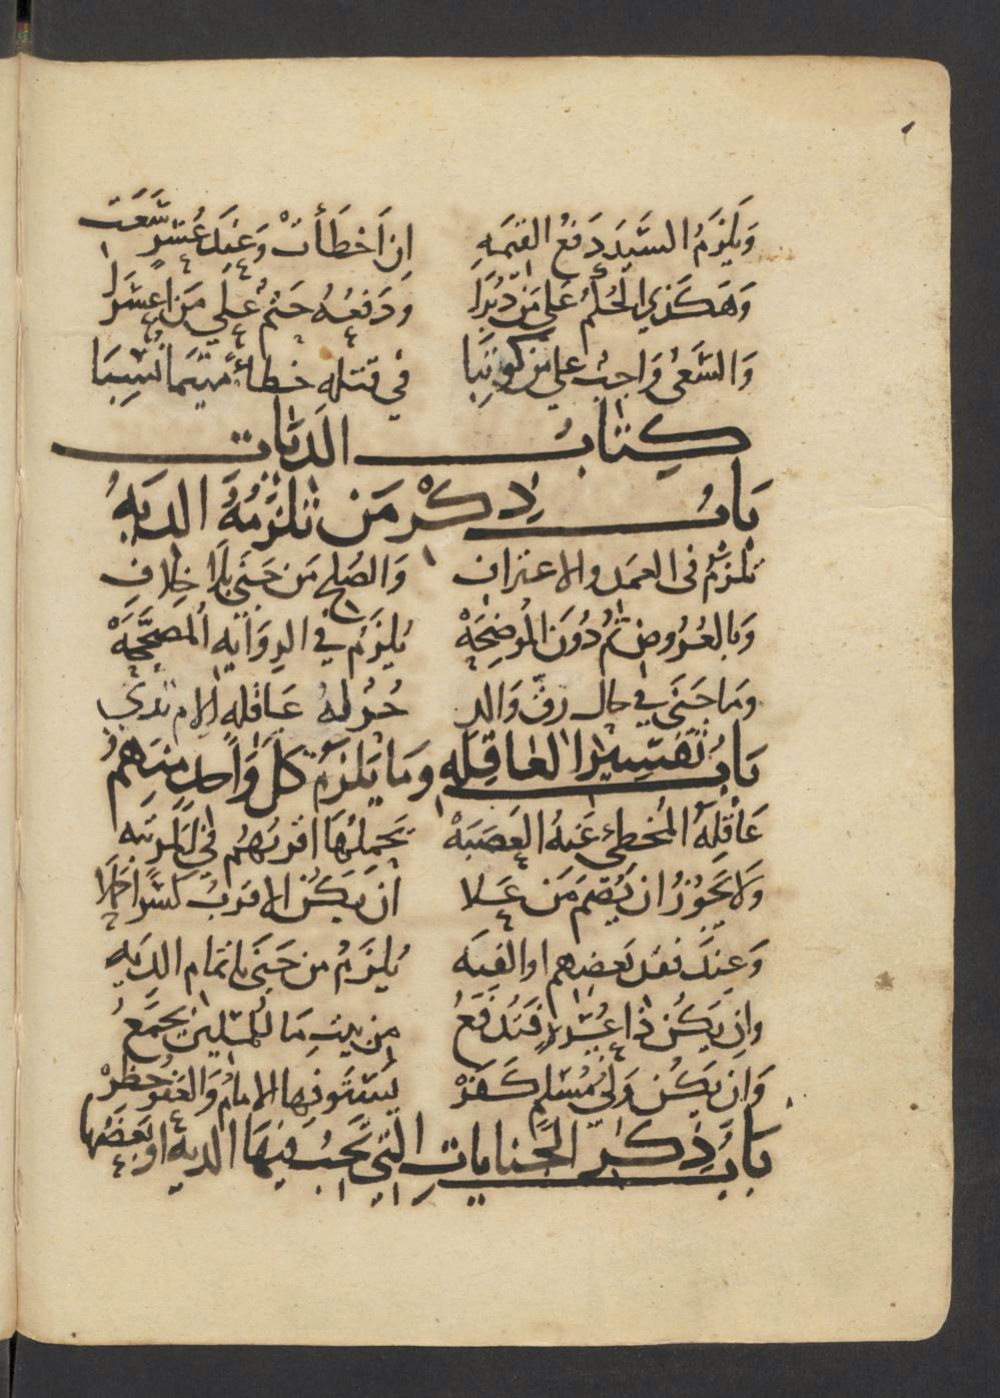 وَيَلْزَمُ السَّيِّدَ دَفْعُ القِيمَهِ اِنْ اَخْطَأَتْ وَعَبْدُ عُسْرٍ سَّعَتِ
وَهَكَذي الحُكْمُ عَلى مَنْ دَبَّرَا وَدَفْعُهُ حَتْمٌ عَلي مَن اعْسَرَا
وَالسَّعْىُ وَاجِبٌ عَلي مَن كُوتِبَا في قتله خطاءً
كِتَابُ الدِّيَات
بَابُ ذِكْرِ مَن تَلْزَمُهُ الديَهُ
تلزمُ فى العمَد والاعتراف وَالصُلح مَن جَنَى بِلاَ خِلافِ
وَبالعُرُوضِ ثُم دُونَ المُوضِحَهْ يُلزَمُ في الرِوَايَهِ المصَحَّحَهْ
وَمَا جَنَى في حال رقّ وَالدِ حُرٍّ لهُ عَاقلهِ الام تدي
بَابُ تَفْسِيْرِ العَاقِلَهِ وَمَا يَلْزَمُ كلَّ وَاحدٍ مِنهُمُ
عَاقلِهُ المُخطى عَنهُ العَصَبَهْ يَحْمِلُهَا اقرَبُهُم في المَرْتَبَه
وَلاَ يَجُوْزُ ان يُقَّمَ مَن عَلا ان يَكُن الاقرَبُ
وَعِنْدَ فَقْدِ بَعضِهِم اوالغيبَه يُلزَمُ من جَنَى باتمام الديَه
وان يَكُن ذا عُسُرٍ فَتُدفَعُ مِن بيتِ مَا للمسلمين يجمَعُ
وَان يَكُن وَلىُّ مُسْلمٍ كَفَرْ يَسْتَوفِهَا الامامُ وَالعَفو حظرْ
بَابُ ذِكرِ الجَنَايَاتِ الَّتي تَجبُ فيهَا الديهُ او بَعضُها